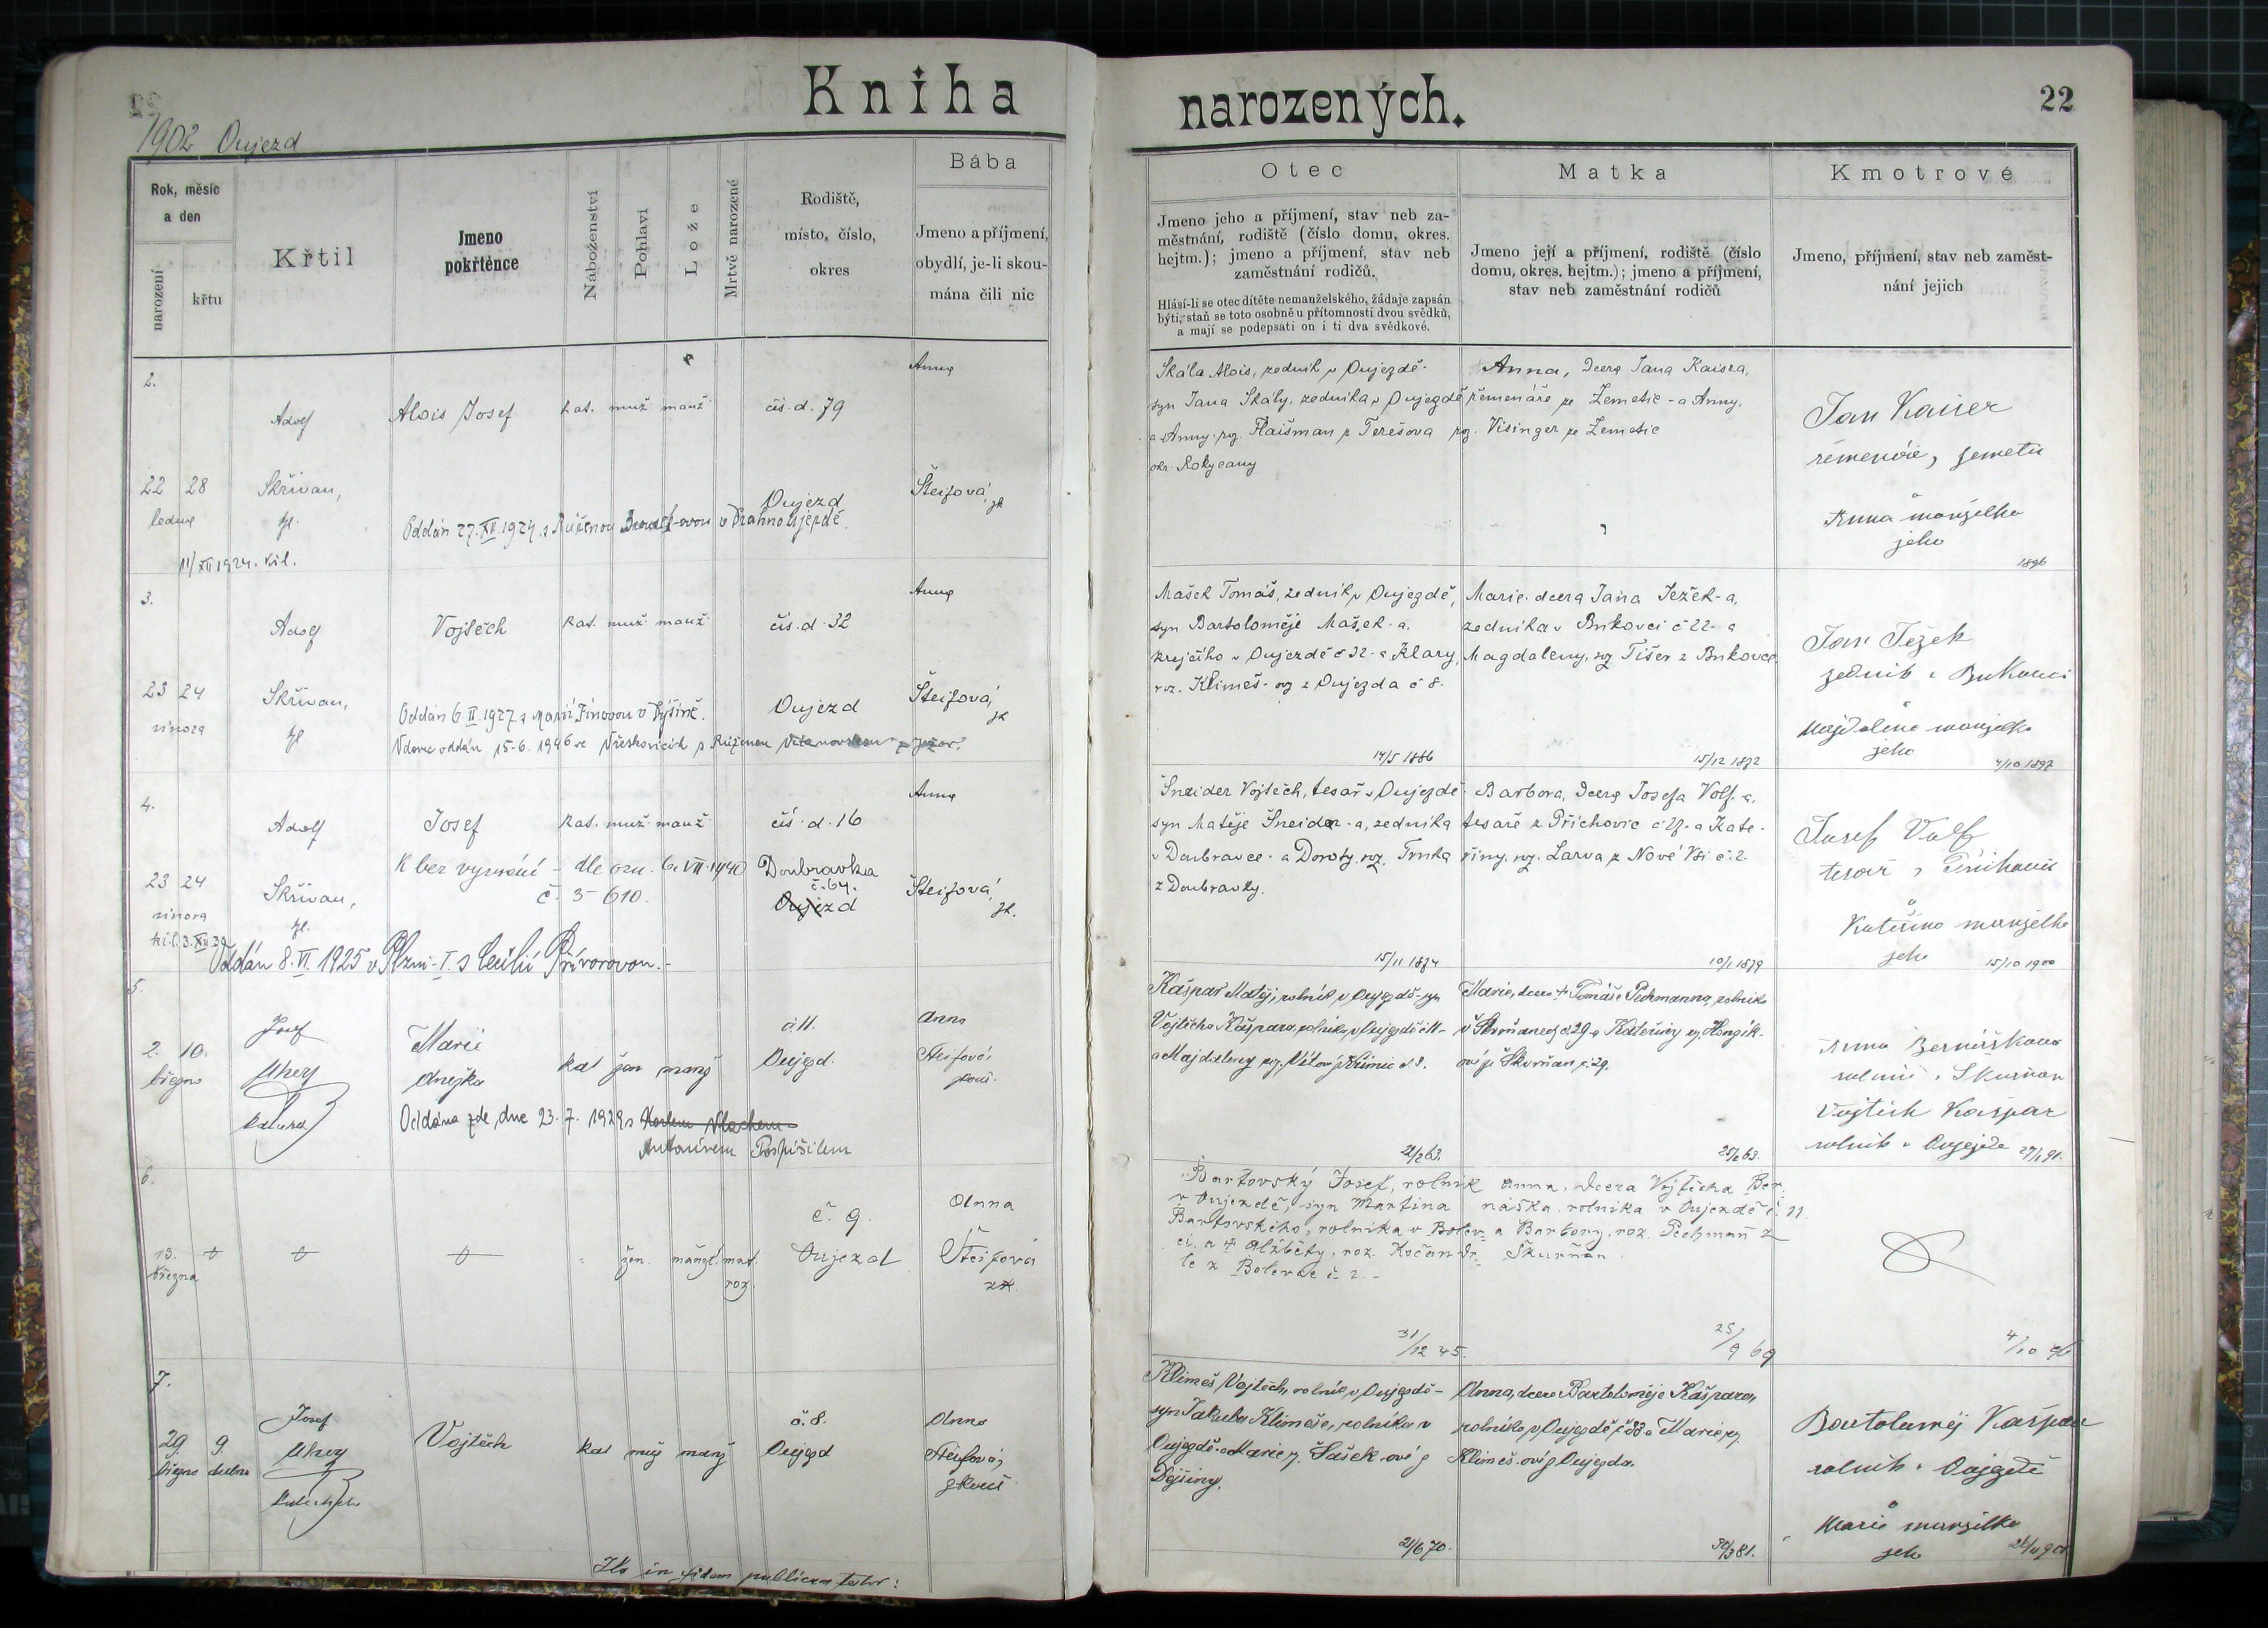 Kniha narozených.
22
1902 Oujezd
Rok, měsíc a den
narození
křtu
Křtil
Jmeno pokřtěnce
Náboženství
Pohlaví
Lože
Mrtvě narozené
Rodiště, místo, číslo, okres
Bába
Jmeno a příjmení, obydlí, je-li skou-
mána čili nic
Otec
Jmeno jeho a příjmení, stav neb za-
městnání, rodiště (číslo domu, okres.
hejtm.); jmeno a příjmení, stav neb
zaměstnání rodičů.
Hlásí-li se otec dítěte nemanželského, žádaje zapsán
býti, staň se toto osobně u přítomnosti dvou svědků,
a mají se podepsati on i ti dva svědkové.
Matka
Jmeno její a příjmení, rodiště (číslo
domu, okres. hejtm.); jmeno a příjmení,
stav neb zaměstnání rodičů
Kmotrové
Jmeno, příjmení, stav neb zaměst-
nání jejich
2.
22 28
ledna
Adolf
Skřivan,
Alois Josef
kat. muž. manž.
čís. d. 79
Oujezd
Anna
Šteifová,
zk
Oddán 27. XII. 1924 s Růženou v Drahnoújezdě.
11/XII 1924.
Skála Alois, zedník v Oujezdě.
syn Jana Skály, zedníka v Oujezdě
a Anny, roz. Flaišman z Terešova
okr. Rokycany
Anna, dcera Jana Kaisra,
řemenáře ze Zemětic - a Anny,
roz. Visinger ze Zemětic
Jan Kaiser
Anna manželka
jeho
1896
3.
23 24
února
Adolf
Skřivan,
Vojtěch
kat. muž. manž.
čís. d. 32
Oujezd
Anna
Šteifová,
zk
Oddán 6. II. 1927 s Marií Fínovou v Dýšině.
Vdovec oddán 15. 6. 1946 ve s Růženou
Mašek Tomáš, zedník v Oujezdě,
syn Bartoloměje Mašek-a,
krejčího v Oujezdě č 32 - a Klary,
roz. Klimeš-ov z Oujezda č 8.
14/5 1886
Marie, dcera Jana Ježek-a,
zedníka v Bukovci č 22 - a
Magdaleny, roz. Tišer z Bukovce.
15/12 1872
Jan Ježek
zedník v Bukovci
Majdalena manželka
jeho
4/10 1897
4.
23 24
února
Adolf
Skřivan,
Josef
kat. muž. manž.
čís. d. 16
Doubravka
č. 64.
Oujezd
Anna
Šteifová,
zk.
K bez vyznání - dle ozn. 6. VII. 1940
č. 3-610.
Oddán 8. VI. 1925 v Plzni-I. s Cecilií Přívorovou.-
Šneider Vojtěch, tesař v Oujezdě
syn Matěje Šneider-a, zedníka
v Doubravce - a Doroty, roz. Trnka
z Doubravky.
15/11 1874
Barbora, dcera Josefa Volf-a,
tesaře z Přichovic č 27 - a Kate-
řiny, roz. Larva z Nové Vsi č. 2.
10/1 1879
Josef Volf
tesař z Přichovic
Kateřina manželka
jeho
15/10 1900
5.
2. 10.
března
Josef
Uhry
Marie
Anežka
kat žen manž
č. 11.
Oujezd.
Anna
Šteifová,
zkouš.
Oddána zde, dne 23. 7. 1929 s Karlem Vlachem
Antonínem Pospíšilem
Kašpar Matěj, rolník v Oujezdě - syn
Vojtěcha Kašpara, rolníka v Oujezdě č 11 -
a Majdaleny roz.
21/2 63.
Marie, dcera + Tomáše Pechmanna, rolníka
v Škvrňanech č. 29 a Kateřiny roz. Honzík-
ové ze Škvrňan č. 29.
25/2 63.
Vojtěch Kašpar
rolník v Oujezdě
27/1 91.
6.
13.
března
žen. manžel. mrt.
roz.
č. 9.
Oujezd
Anna
Šteifová
zk.
Bartovský Josef, rolník
v Oujezdě, syn Martina
Bartovského, rolníka v Bolev-
ci, a + Alžběty, roz. Kočandr-
le z Bolevce č. 2. -
31/12 45.
Anna, dcera Vojtěcha Ber-
náška, rolníka v Oujezdě č. 21
a Barbory, roz. Pechman z
Škurňan
25/9 69
4/10 96
7.
29. 9.
března dubna
Josef
Uhry
Vojtěch
kat muž manž
č. 8.
Oujezd
Anna
Šteifová,
zkouš.
Klimeš Vojtěch, rolník v Oujezdě -
syn Jakuba Klimeše, rolníka v
Oujezdě a Marie r. Sašek-ové z
Dejšiny.
21/6 70.
Anna, dcera Bartoloměje Kašpara,
rolníka v Oujezdě č 33 a Marie roz.
Klimeš-ové z Oujezda.
30/3 81.
Bartoloměj Kašpar
rolník v Oujezdě
Marie manželka
jeho
Ita in fidem publicam testor: